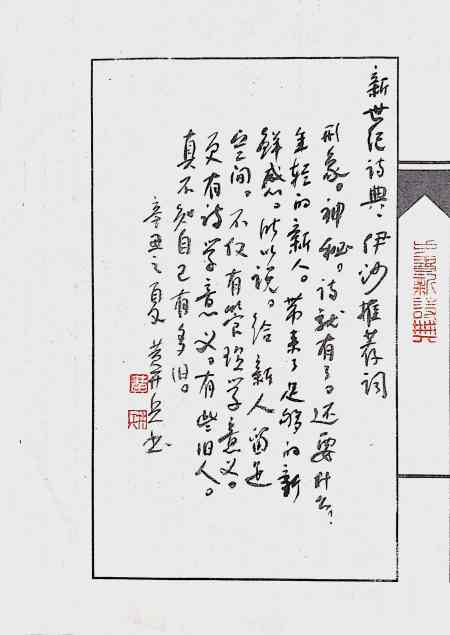 新世纪诗典：伊沙推荐词
形象。神秘。诗就有了。还要什么？
年轻的新人。带来了足够的新
鲜感。所以说。给新人留足
空间。不仅有管理学意义。
更有诗学意义。有些旧人。
真不知自己有多旧。
辛丑之夏 黄开兵书